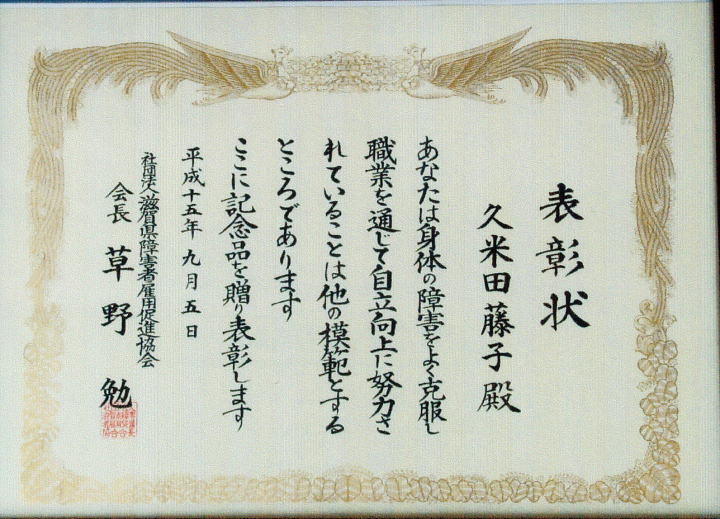 表彰状
久米田藤子殿
あなたは身体の障害をよく克服し
職業を通じて自立向上に努力さ
れていることは他の模範とする
ところであります
ここに記念品を贈り表彰します
平成十五年九月五日
社団法人滋賀県障害者雇用促進協会
会長 草野勉